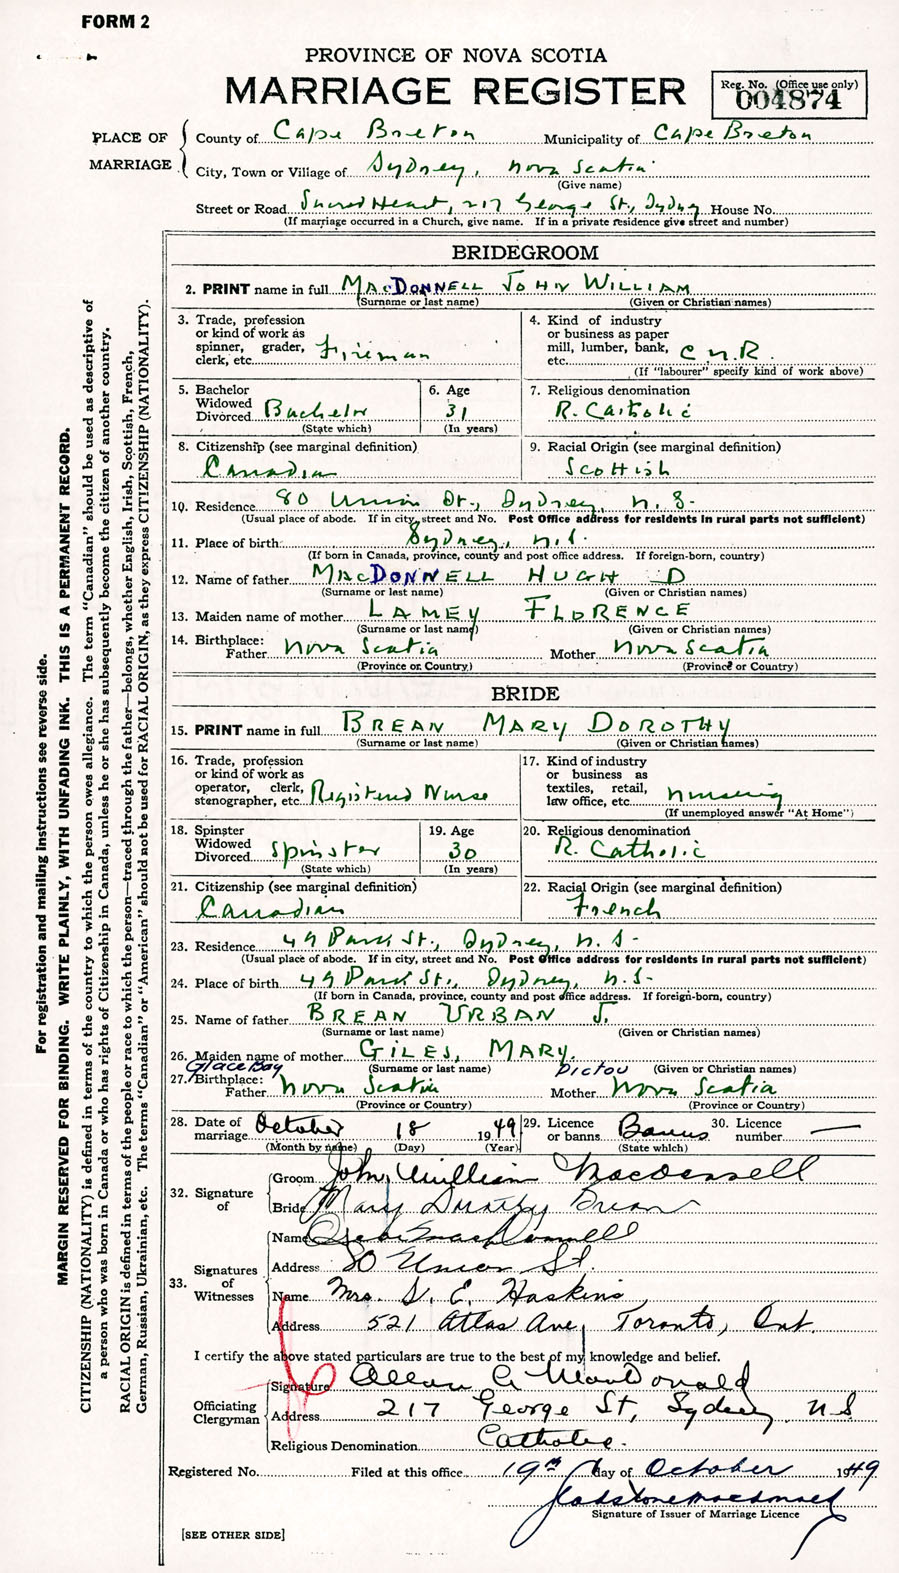 FORM 2
PROVINCE OF NOVA SCOTIA
MARRIAGE REGISTER
Reg. No. (Office use only)
004874
PLACE OF MARRIAGE
County of Cape Breton Municipality of Cape Breton
City, Town or Village of Sydney, Nova Scotia
(Give name)
Street or Road Sacred Heart, 217 George St., Sydney House No.
(If marriage occurred in a Church, give name. If in a private residence give street and number)
BRIDEGROOM
2. PRINT name in full MACDONNELL JOHN WILLIAM
(Surname or last name) (Given or Christian names)
3. Trade, profession or kind of work as spinner, grader, clerk, etc. Fireman
4. Kind of industry or business as paper mill, lumber, bank, etc. C N.R.
(If "labourer" specify kind of work above)
5. Bachelor Widowed Divorced Bachelor
(State which)
6. Age 31
(In years)
7. Religious denomination R. Catholic
8. Citizenship (see marginal definition) Canadian
9. Racial Origin (see marginal definition) Scottish
10. Residence 80 Union St., Sydney, N.S.
(Usual place of abode. If in city, street and No. Post Office address for residents in rural parts not sufficient)
11. Place of birth Sydney, N.S.
(If born in Canada, province, county and post office address. If foreign-born, country)
12. Name of father MACDONNELL HUGH D
(Surname or last name) (Given or Christian names)
13. Maiden name of mother LAMEY FLORENCE
(Surname or last name) (Given or Christian names)
14. Birthplace: Father Nova Scotia Mother Nova Scotia
(Province or Country) (Province or Country)
BRIDE
15. PRINT name in full BREAN MARY DOROTHY
(Surname or last name) (Given or Christian names)
16. Trade, profession or kind of work as operator, clerk, stenographer, etc. Registered Nurse
17. Kind of industry or business as textiles, retail, law office, etc. Nursing
(If unemployed answer "At Home")
18. Spinster Widowed Divorced Spinster
(State which)
19. Age 30
(In years)
20. Religious denomination R. Catholic
21. Citizenship (see marginal definition) Canadian
22. Racial Origin (see marginal definition) French
23. Residence 49 Park St., Sydney, N.S.
(Usual place of abode. If in city, street and No. Post Office address for residents in rural parts not sufficient)
24. Place of birth 49 Park St., Sydney, N.S.
(If born in Canada, province, county and post office address. If foreign-born, country)
25. Name of father BREAN URBAN J.
(Surname or last name) (Given or Christian names)
26. Maiden name of mother GILES, MARY.
(Surname or last name) (Given or Christian names)
Glace Bay Pictou
27. Birthplace: Father Nova Scotia Mother Nova Scotia
(Province or Country) (Province or Country)
28. Date of marriage October 18 1949
(Month by name) (Day) (Year)
29. Licence or banns Banns
(State which)
30. Licence number —
32. Signature of
Groom John William MacDonnell
Bride Mary Dorothy Brean
33. Signatures of Witnesses
Name MacDonnell
Address 80 Union St.
Name Mrs. S. E. Haskins
Address 521 Atlas Ave, Toronto, Ont.
I certify the above stated particulars are true to the best of my knowledge and belief.
Officiating Clergyman
Signature Allan G. MacDonald
Address 217 George St, Sydney N S
Religious Denomination Catholic.
Registered No. Filed at this office 19th day of October 1949
Gladstone MacDonald
Signature of Issuer of Marriage Licence
[SEE OTHER SIDE]
For registration and mailing instructions see reverse side.
MARGIN RESERVED FOR BINDING. WRITE PLAINLY, WITH UNFADING INK. THIS IS A PERMANENT RECORD.
CITIZENSHIP (NATIONALITY) is defined in terms of the country to which the person owes allegiance. The term "Canadian" should be used as descriptive of
a person who was born in Canada or who has rights of Citizenship in Canada, unless he or she has subsequently become the citizen of another country.
RACIAL ORIGIN is defined in terms of the people or race to which the person—traced through the father—belongs, whether English, Irish, Scottish, French,
German, Russian, Ukrainian, etc. The terms "Canadian" or "American" should not be used for RACIAL ORIGIN, as they express CITIZENSHIP (NATIONALITY).